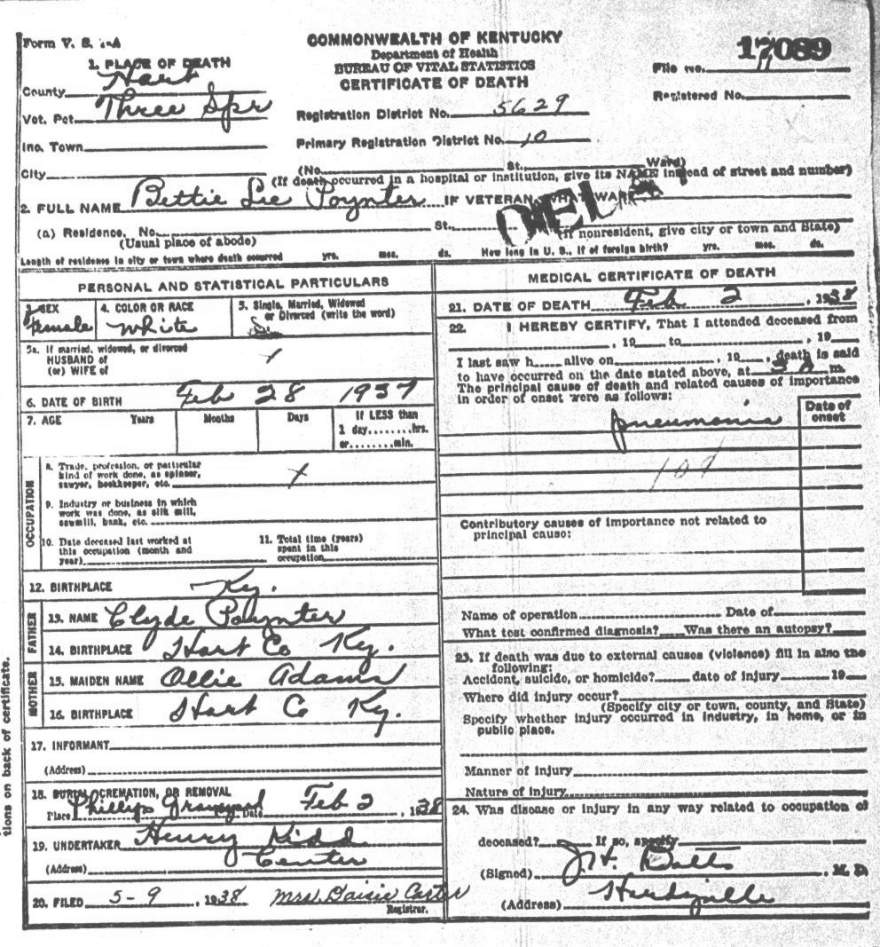 COMMONWEALTH OF KENTUCKY
Department of Health
BUREAU OF VITAL STATISTICS
CERTIFICATE OF DEATH
Form V. S. 1-A
17089
File No.
Registered No.
1. PLACE OF DEATH
County Hart
Vot. Pct. Three Spr
Inc. Town
City
Registration District No. 5629
Primary Registration District No. 10
(No. St., Ward)
(If death occurred in a hospital or institution, give its NAME instead of street and number)
2. FULL NAME Bettie Lee Poynter IF VETERAN, WHAT WAR
(a) Residence. No. St.,
(Usual place of abode) (If nonresident, give city or town and State)
Length of residence in city or town where death occurred yrs. mos. ds. How long in U. S., if of foreign birth? yrs. mos. ds.
PERSONAL AND STATISTICAL PARTICULARS
3. SEX 4. COLOR OR RACE 5. Single, Married, Widowed
or Divorced (write the word)
Female white Si
5a. If married, widowed, or divorced
HUSBAND of
(or) WIFE of
6. DATE OF BIRTH Feb 28 1937
7. AGE Years Months Days If LESS than
1 day........hrs.
or........min.
OCCUPATION
8. Trade, profession, or particular
kind of work done, as spinner,
sawyer, bookkeeper, etc.
9. Industry or business in which
work was done, as silk mill,
sawmill, bank, etc.
10. Date deceased last worked at
this occupation (month and
year)
11. Total time (years)
spent in this
occupation
12. BIRTHPLACE Ky.
FATHER
13. NAME Clyde Poynter
14. BIRTHPLACE Hart Co Ky.
MOTHER
15. MAIDEN NAME Ollie Adams
16. BIRTHPLACE Hart Co Ky.
17. INFORMANT
(Address)
18. BURIAL, CREMATION, OR REMOVAL
Place Phillips Graveyard Date Feb 2, 1938
19. UNDERTAKER Henry Kidd
(Address) Center
20. FILED 5-9, 1938 Mrs. Daisie Carter
Registrar.
MEDICAL CERTIFICATE OF DEATH
21. DATE OF DEATH Feb 2, 1938
22. I HEREBY CERTIFY, That I attended deceased from
, 19 to , 19
I last saw h alive on , 19 , death is said
to have occurred on the date stated above, at 3 A m.
The principal cause of death and related causes of importance
in order of onset were as follows:
Date of
onset
pneumonia
Contributory causes of importance not related to
principal cause:
Name of operation Date of
What test confirmed diagnosis? Was there an autopsy?
23. If death was due to external causes (violence) fill in also the
following:
Accident, suicide, or homicide? date of injury 19
Where did injury occur?
(Specify city or town, county, and State)
Specify whether injury occurred in industry, in home, or in
public place.
Manner of injury
Nature of injury
24. Was disease or injury in any way related to occupation of
deceased? If so, specify
(Signed) , M. D.
(Address)
tions on back of certificate.